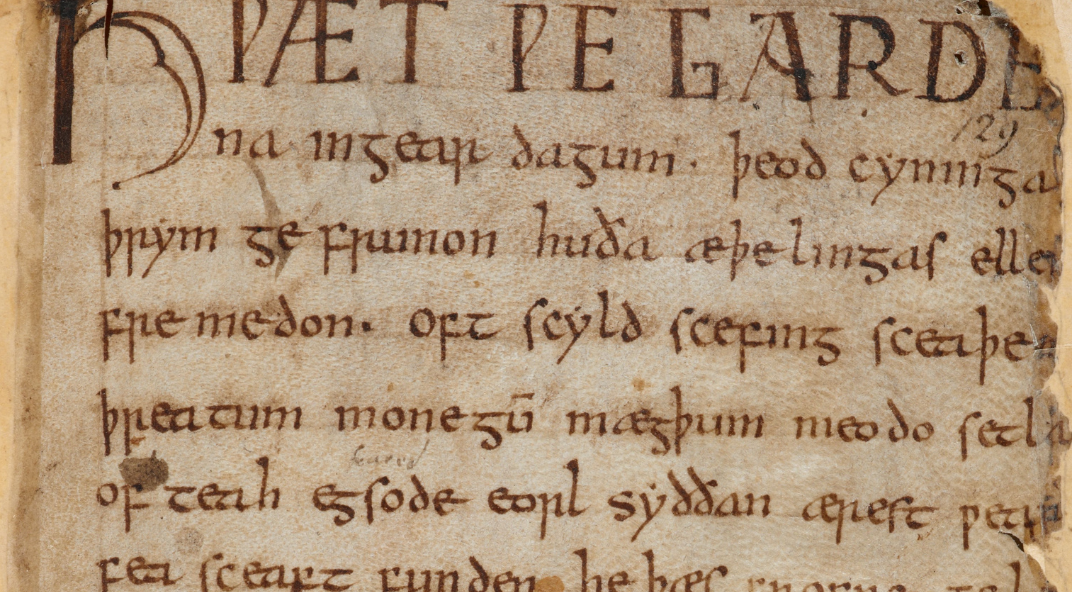 HǷÆT ǷE GARDE
129
na ingear dagum · þeod cyninga
þrym ge frunon huða æþelingas elle
fremedon · oft scyld scefing sceaþe
þreatum monegū mægþum meodo setla
of teah egsode eorl syððan ærest ƿear
fea sceaft funden he þæs frofre